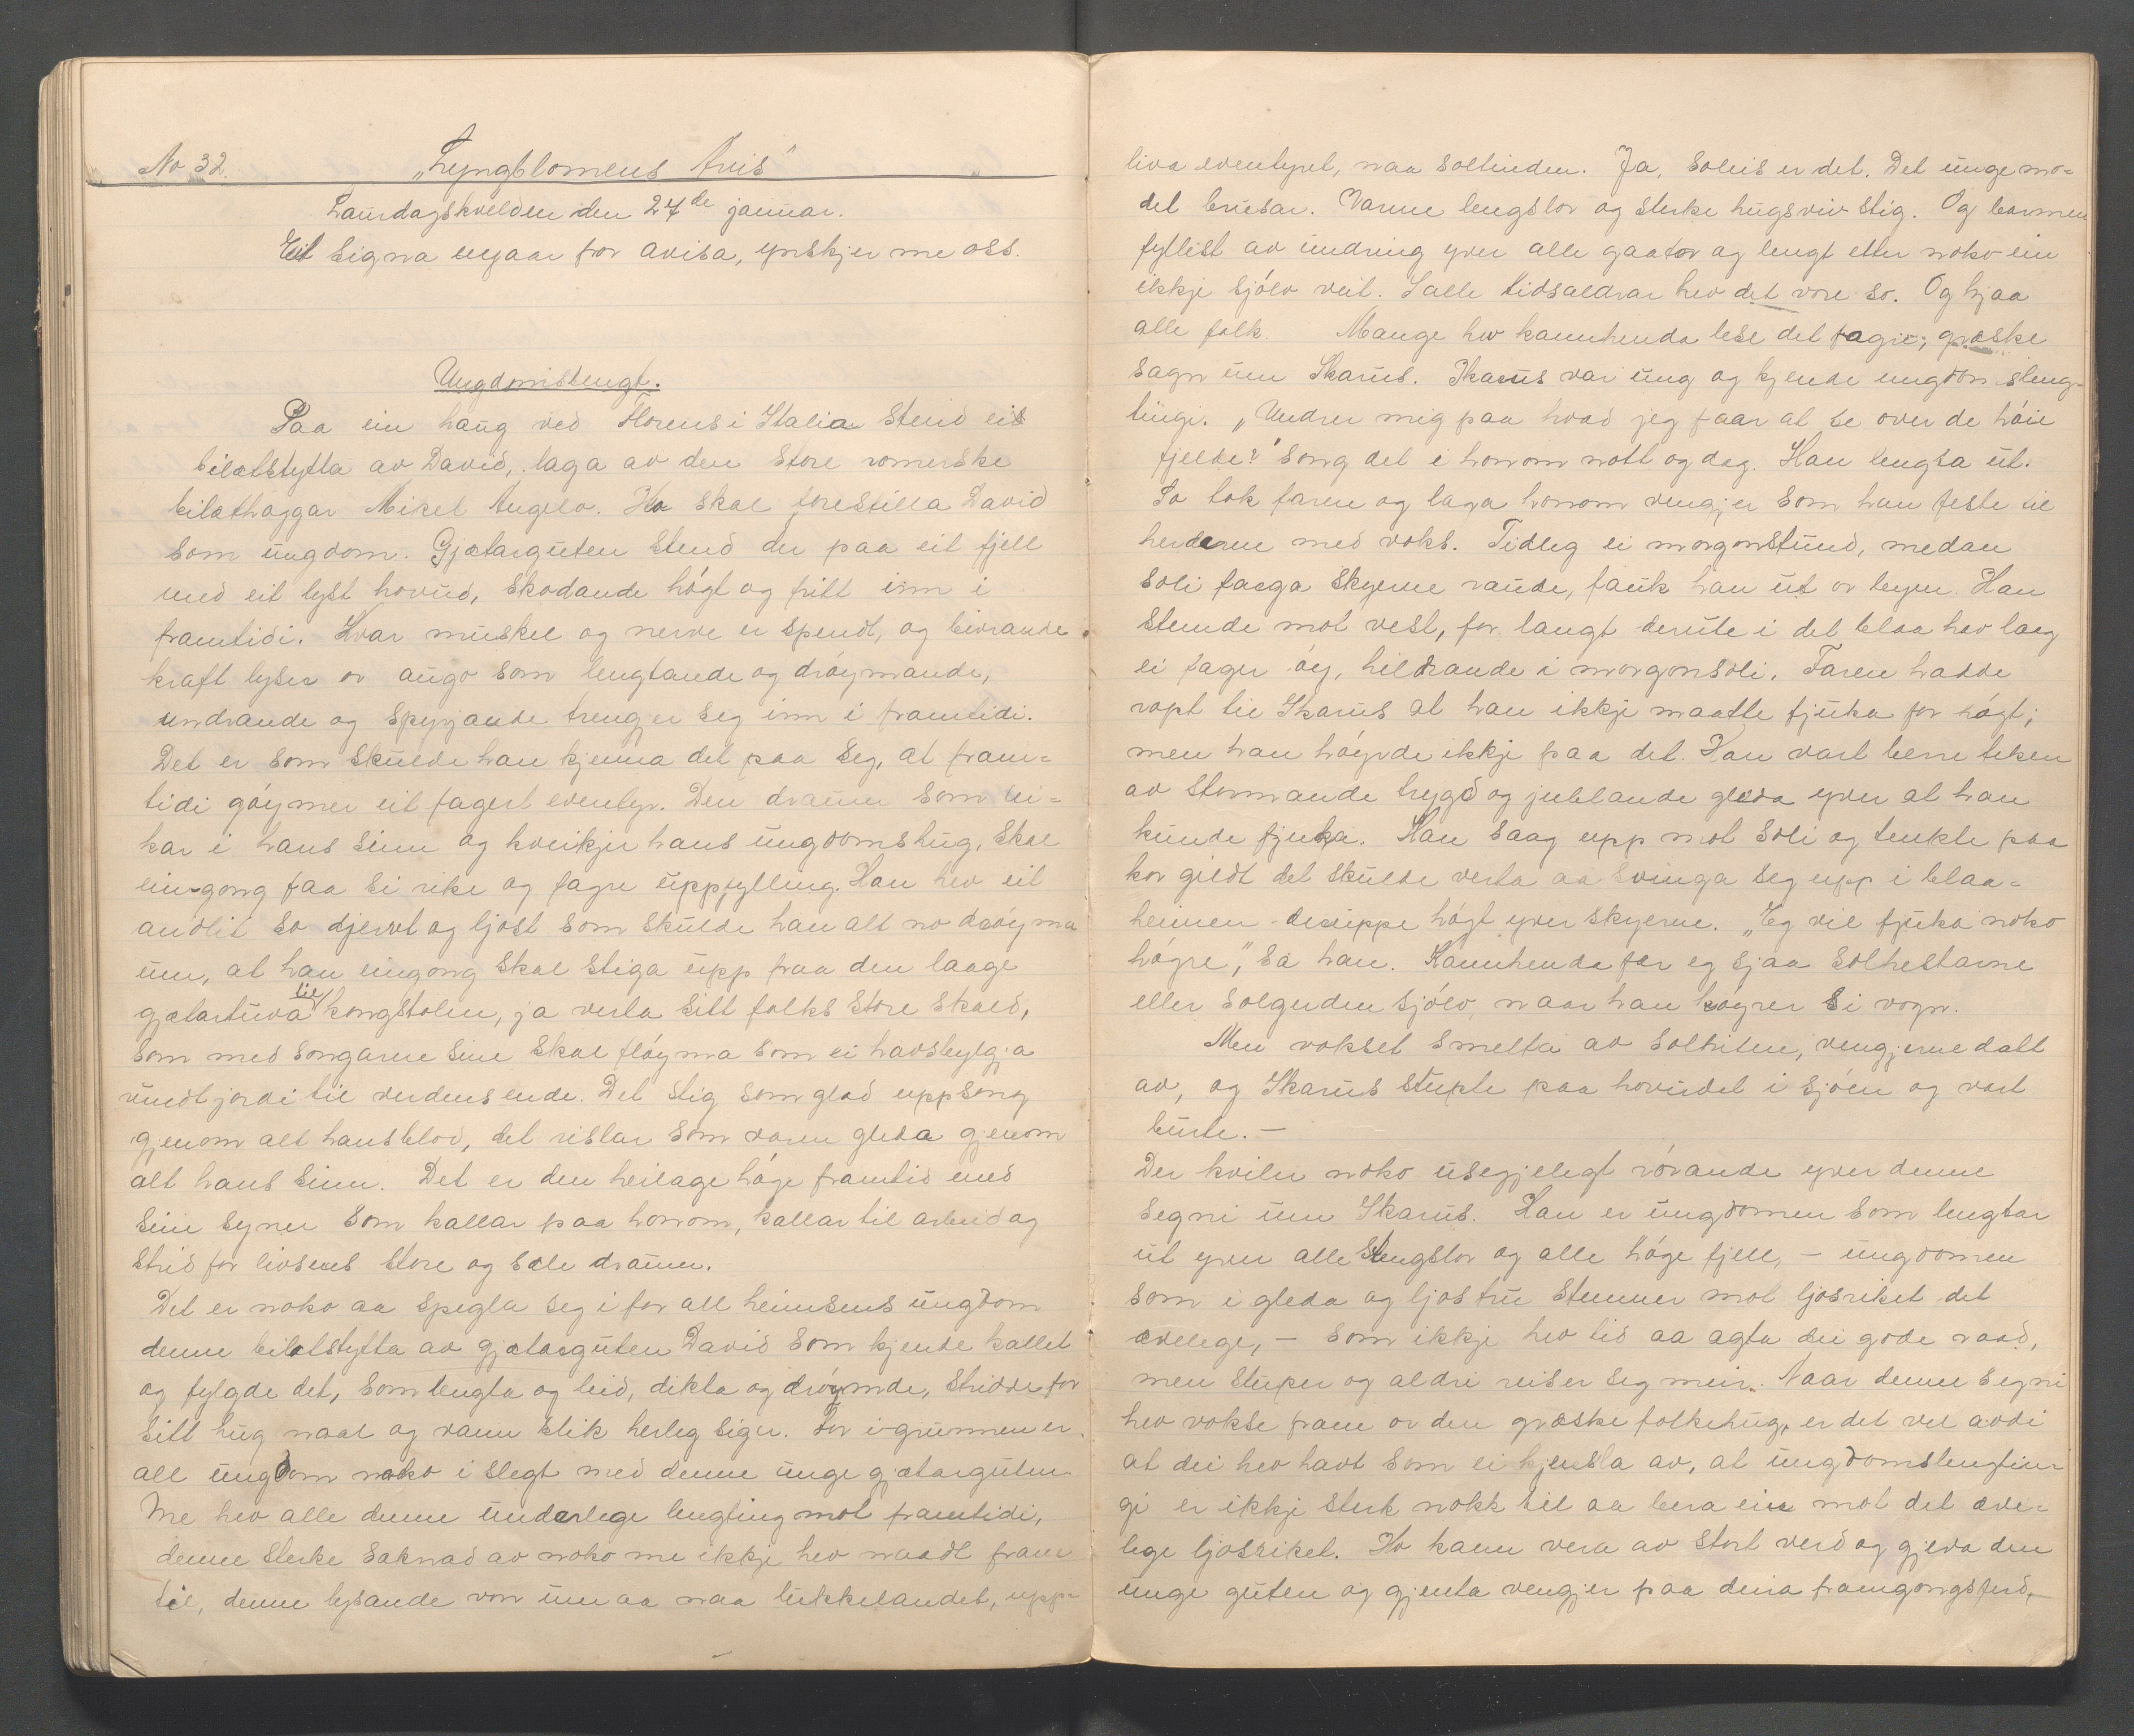 No 32. „Lyngblomens Avis"
Laurdagskvelden den 27de januar.
Eit signa nyaar for avisa, ynskjer me oss.
Ungdomslengt.
Paa ein haug ved Florens i Italia stend eit
bilætstytta av David, laga av den store romerske
bilæthoggar Mikel Angelo. Ho skal forestilla David
som ungdom. Gjætarguten stend der paa eit fjell
med eit lyst hovud, skodande högt og fritt inn i
framtidi. Kvar muskel og nerve er spendt, og bivrande
kraft lyser or augo som lengtande og dröymande,
undrande og spyrjande trengjer seg inn i framtidi.
Det er som skulde han kjenna det paa seg, at fram-
tidi göymer eit fagert eventyr. Den draum som vi-
kar i hans sinn og kveikjer hans ungdomshug, skal
ein gong faa si rike og fagre uppfylling. Han hev eit
andlit so djervt og ljost som skulde han alt no dröyma
um, at han eingong skal stiga upp fraa den laage
gjætartuva til kongstolen, ja verta sitt folks store skald,
som med songarne sine skal flöyma som ei havsbylgja
rundt jordi til verdens ende. Det stig som glad uppsong
gjenom alt hans blod, det rislar som varm gleda gjenom
alt hans sinn. Det er den heilage höge framtid med
sine syner som kallar paa honom, kallar til arbeid og
strid for livsens store og sæle draum.
Det er noko aa spegla seg i for all heimsens ungdom
denne bilætstytta av gjætarguten David som kjende kallet
og fylgde det, som lengta og leid, dikta og dröymde, stridde for
sitt hugmaal og vann slik herleg siger. For i grunnen er
all ungdom noko i slegt med denne unge gjætarguten.
Me hev alle denne underlege lengting mot framtidi,
denne sterke saknad av noko me ikkje hev naadt fram
til, denne lysande von um aa naa lukkelandet, upp-
liva eventyret, naa soltinden. Ja, soleis er det. Det unge mo-
det brusar. Varme lengslor og sterke hugsviv stig. Og barmen
fyllest av undring yver alle gaator og lengt etter noko ein
ikkje sjölv veit. I alle tidsaldrar hev det vore so. Og hjaa
alle folk. Mange hev kannhenda lese det fagre, græske
sagn um Ikarus. Ikarus var ung og kjende ungdomsleng-
tingi. „Undrer mig paa hvad jeg faar at se over de höie
fjelde?" song det i honom nott og dag. Han lengta ut.
So tok faren og laga honom vengjer som han feste til
herdarne med voks. Tidleg ei morgonstund, medan
soli farga skyerne raude, fauk han ut or byen. Han
stemde mot vest, for langt derute i det blaa hav laag
ei fager öy, hildrande i morgonsoli. Faren hadde
ropt til Ikarus at han ikkje maatte fjuka for högt;
men han höyrde ikkje paa det. Han vart berre teken
av stormande trygd og jublande gleda yver at han
kunde fjuka. Han saag upp mot soli og tenkte paa
kor gildt det skulde verta aa svinga seg upp i blaa-
heimen deruppe högt yver skyerne. „Eg vil fjuka noko
högre", sa han. Kannhenda fær eg sjaa solhestarne
eller solguden sjölv, naar han köyrer si vogn.
Men vokset smelta av solhiten, vengjerne datt
av, og Ikarus stupte paa hovudet i sjöen og vart
burte. –
Der kviler noko usegjelegt rörande yver denne
segni um Ikarus. Han er ungdomen som lengtar
ut yver alle stengslor og alle höge fjell, – ungdomen
som i gleda og ljos tru stemner mot ljosriket det
ævelege, – som ikkje hev tid aa agta dei gode raad,
men stuper og aldri reiser seg meir. Naar denne segni
hev vokse fram or den græske folkehug, er det vel avdi
at dei hev havt som ei kjensla av, at ungdomslengtin-
gi er ikkje sterk nokk til aa bera ein mot det æve-
lege ljosriket. Ho kann vera av stort verd og gjeva den
unge guten og gjenta vengjer paa deira framgongsferd,